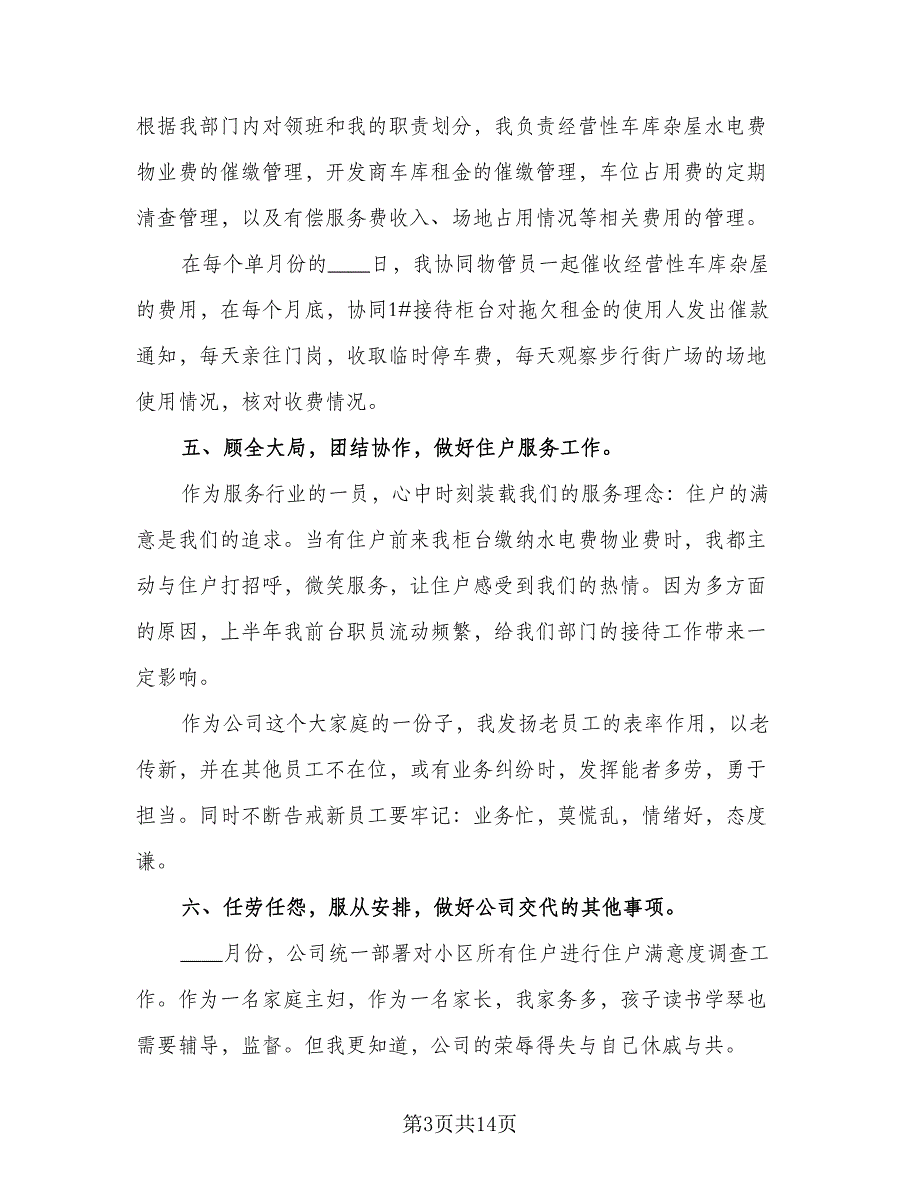 根据我部门内对领班和我的职责划分，我负责经营性车库杂屋水电费
物业费的催缴管理，开发商车库租金的催缴管理，车位占用费的定期
清查管理，以及有偿服务费收入、场地占用情况等相关费用的管理。
在每个单月份的____日，我协同物管员一起催收经营性车库杂屋
的费用，在每个月底，协同1#接待柜台对拖欠租金的使用人发出催款
通知，每天亲往门岗，收取临时停车费，每天观察步行街广场的场地
使用情况，核对收费情况。
五、顾全大局，团结协作，做好住户服务工作。
作为服务行业的一员，心中时刻装载我们的服务理念：住户的满
意是我们的追求。当有住户前来我柜台缴纳水电费物业费时，我都主
动与住户打招呼，微笑服务，让住户感受到我们的热情。因为多方面
的原因，上半年我前台职员流动频繁，给我们部门的接待工作带来一
定影响。
作为公司这个大家庭的一份子，我发扬老员工的表率作用，以老
传新，并在其他员工不在位，或有业务纠纷时，发挥能者多劳，勇于
担当。同时不断告戒新员工要牢记：业务忙，莫慌乱，情绪好，态度
谦。
六、任劳任怨，服从安排，做好公司交代的其他事项。
____月份，公司统一部署对小区所有住户进行住户满意度调查工
作。作为一名家庭主妇，作为一名家长，我家务多，孩子读书学琴也
需要辅导，监督。但我更知道，公司的荣辱得失与自己休戚与共。
第3页共14页